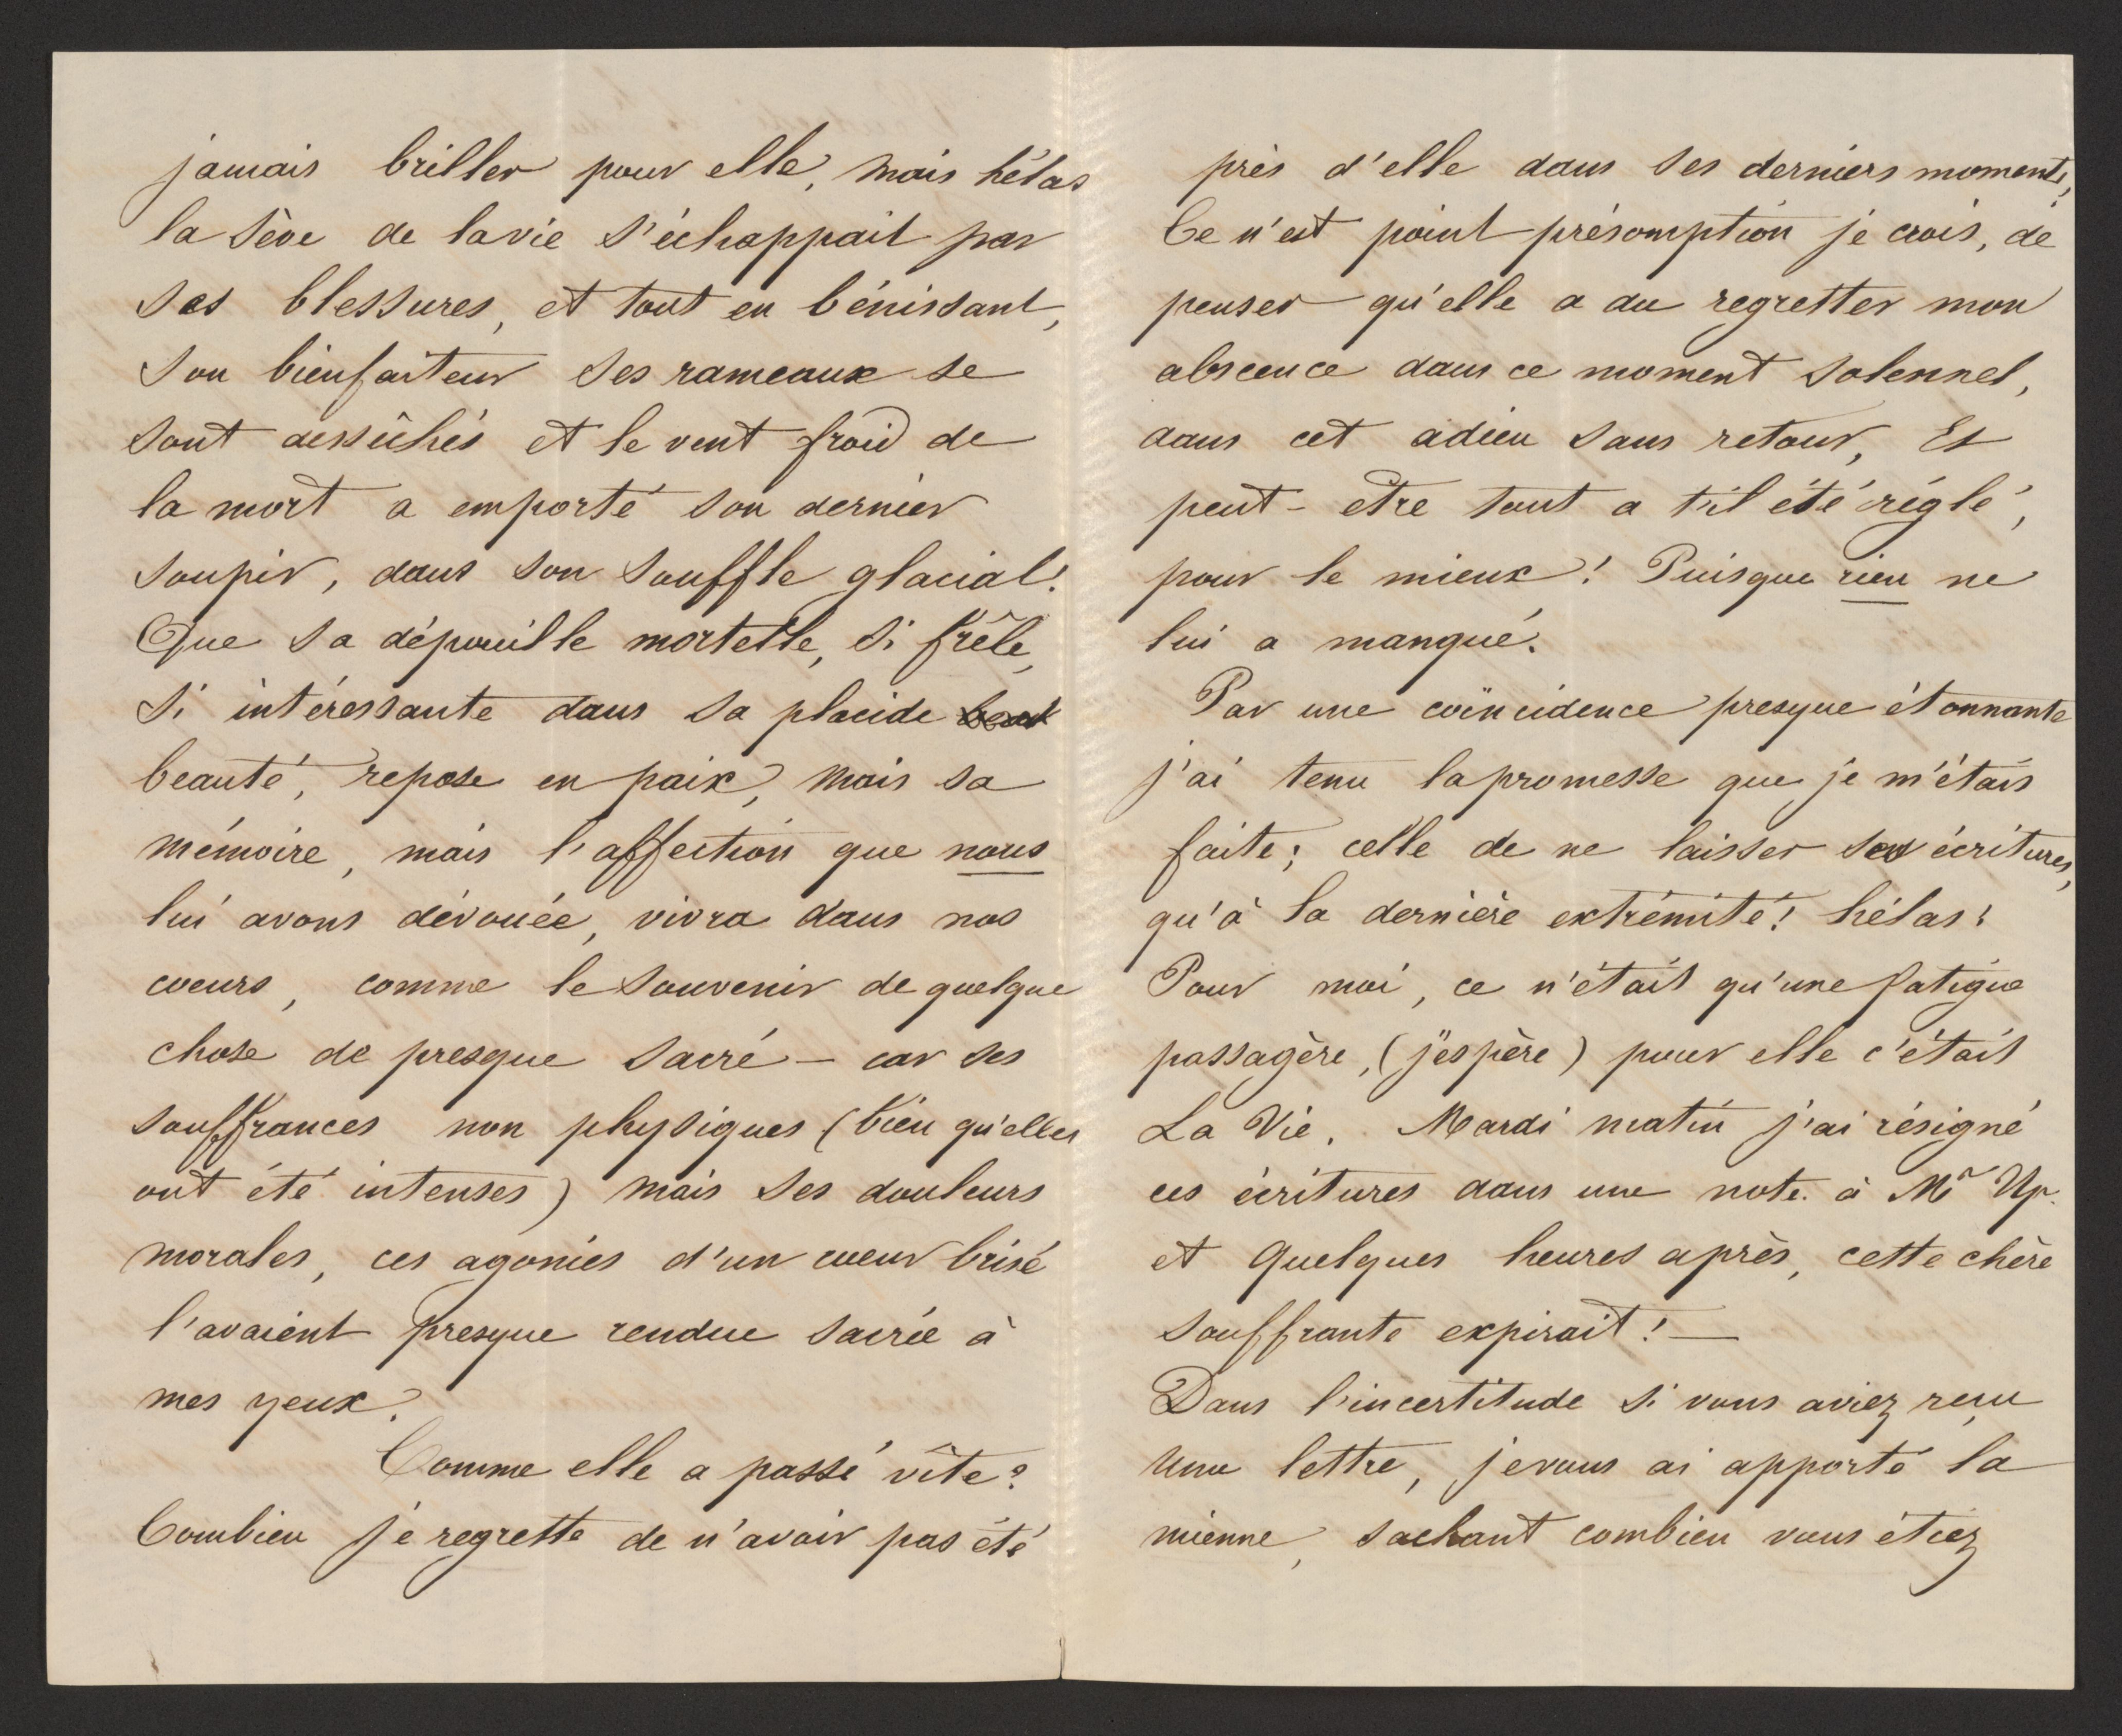 jamais briller pour elle, mais hélas
la sève de la vie s'échappait par
ses blessures, et tout en bénissant,
son bienfaiteur ses rameaux se
sont dessêchés et le vent froid de
la mort a emporté son dernier
soupir, dans son souffle glacial!
Que sa dépouille mortelle, si frêle,
si intéressante dans sa placide
beauté, repose en paix, mais sa
mémoire, mais l'affection que nous
lui avons dévouée, vivra dans nos
coeurs, comme le souvenir de quelque
chose de presque sacré — car ses
souffrances non physiques (bien qu'elles
ont été intenses) mais ses douleurs
morales, ces agonies d'un coeur brisé
l'avaient presque rendue sacrée à
mes yeux.
Comme elle a passé vîte?
Combien je regrette de n'avoir pas été
près d'elle dans ses derniers moments,
Ce n'est point présomption je crois, de
penser qu'elle a du regretter mon
abscence dans ce moment solennel,
dans cet adieu sans retour, Et
peut-etre tout a t'il été réglé,
pour le mieux! Puisque rien ne
lui a manqué.
Par une coïncidence presque étonnante
j'ai tenu la promesse que je m'étais
faite; celle de ne laisser ses écritures,
qu'à la dernière extrémité! hélas!
Pour moi, ce n'était qu'une fatigue
passagère, (j'espère) pour elle c'était
La Vie. Mardi matin j'ai résigné
ces écritures dans une note à Mr Up.
et quelques heures après, cette chère
souffrante expirait! —
Dans l'incertitude si vous aviez reçu
une lettre, je vous ai apporté la
mienne, sachant combien vous étiez